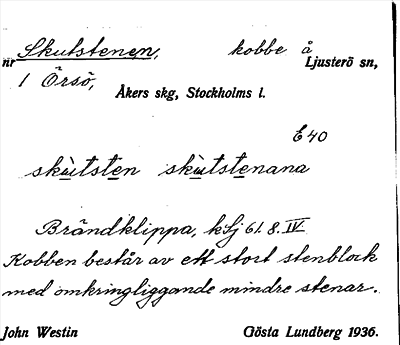 Skutstenen, kobbe å
nr Ljusterö sn,
1 Örsö,
Åkers skg, Stockholms l.
E 40
skùtsten skùtstenana
Brändklippa, kfj 61. 8. IV
Kobben består av ett stort stenblock
med omkringliggande mindre stenar.
John Westin Gösta Lundberg 1936.